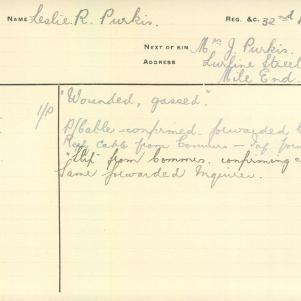 NAME Leslie R. Purkis. REG. &C. 32nd
NEXT OF KIN Mrs J. Purkis.
ADDRESS Surfine Street
Mile End.
"Wounded, gassed".
1/P P/Cable confirmed. forwarded
Red cable from Commrs —
"Slip" from Commrs. confirming
same forwarded Inquirer.